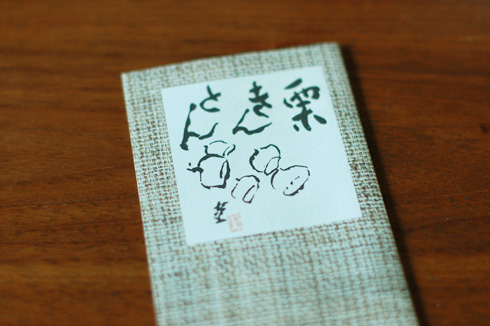 栗
きん
とん